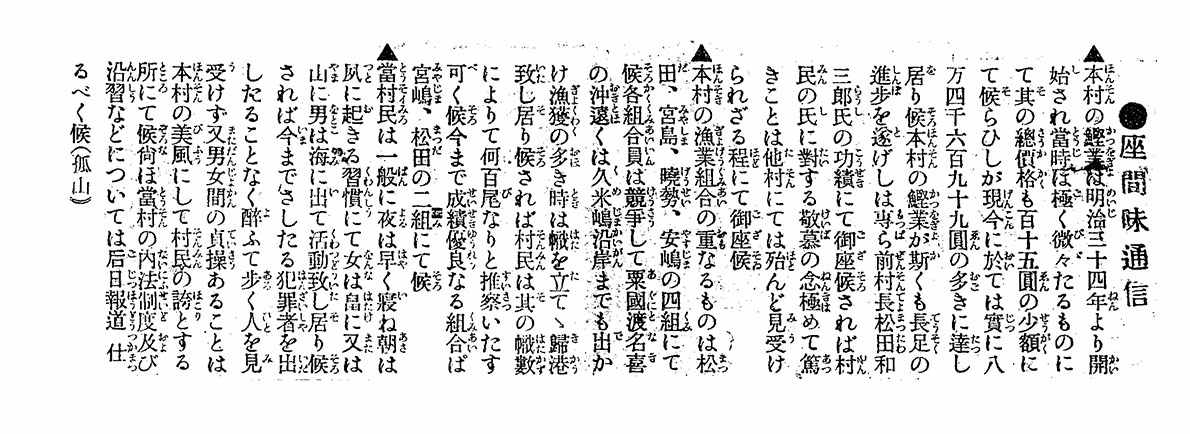 ●座間味通信
▲本村の鰹業は明治三十四年より開
始され當時は極く微々たるものに
て其の總價格も百十五圓の少額に
て候らひしが現今に於ては實に八
万四千六百九十九圓の多きに達し
居り候本村の鰹業が斯くも長足の
進歩を遂げしは専ら前村長松田和
三郎氏の功績にて御座候されば村
民の氏に對する敬慕の念極めて篤
きことは他村にては殆んど見受け
られざる程にて御座候
▲本村の漁業組合の重なるものは松
田、宮島、曉勢、安嶋の四組にて
候各組合員は競争して粟國渡名喜
の沖遠くは久米嶋沿岸までも出か
け漁獲の多き時は幟を立てゝ歸港
致し居り候されば村民は其の幟數
によりて何百尾なりと推察いたす
可く候今まで成績優良なる組合は
宮嶋、松田の二組にて候
▲當村民は一般に夜は早く寢ね朝は
夙に起きる習慣にて女は畠に又は
山に男は海に出て活動致し居り候
されば今までさしたる犯罪者を出
したることなく醉ふて歩く人を見
受けず又男女間の貞操あることは
本村の美風にして村民の誇とする
所にて候尚ほ當村の内法制度及び
沿習などについては后日報道 仕
るべく候(孤山)